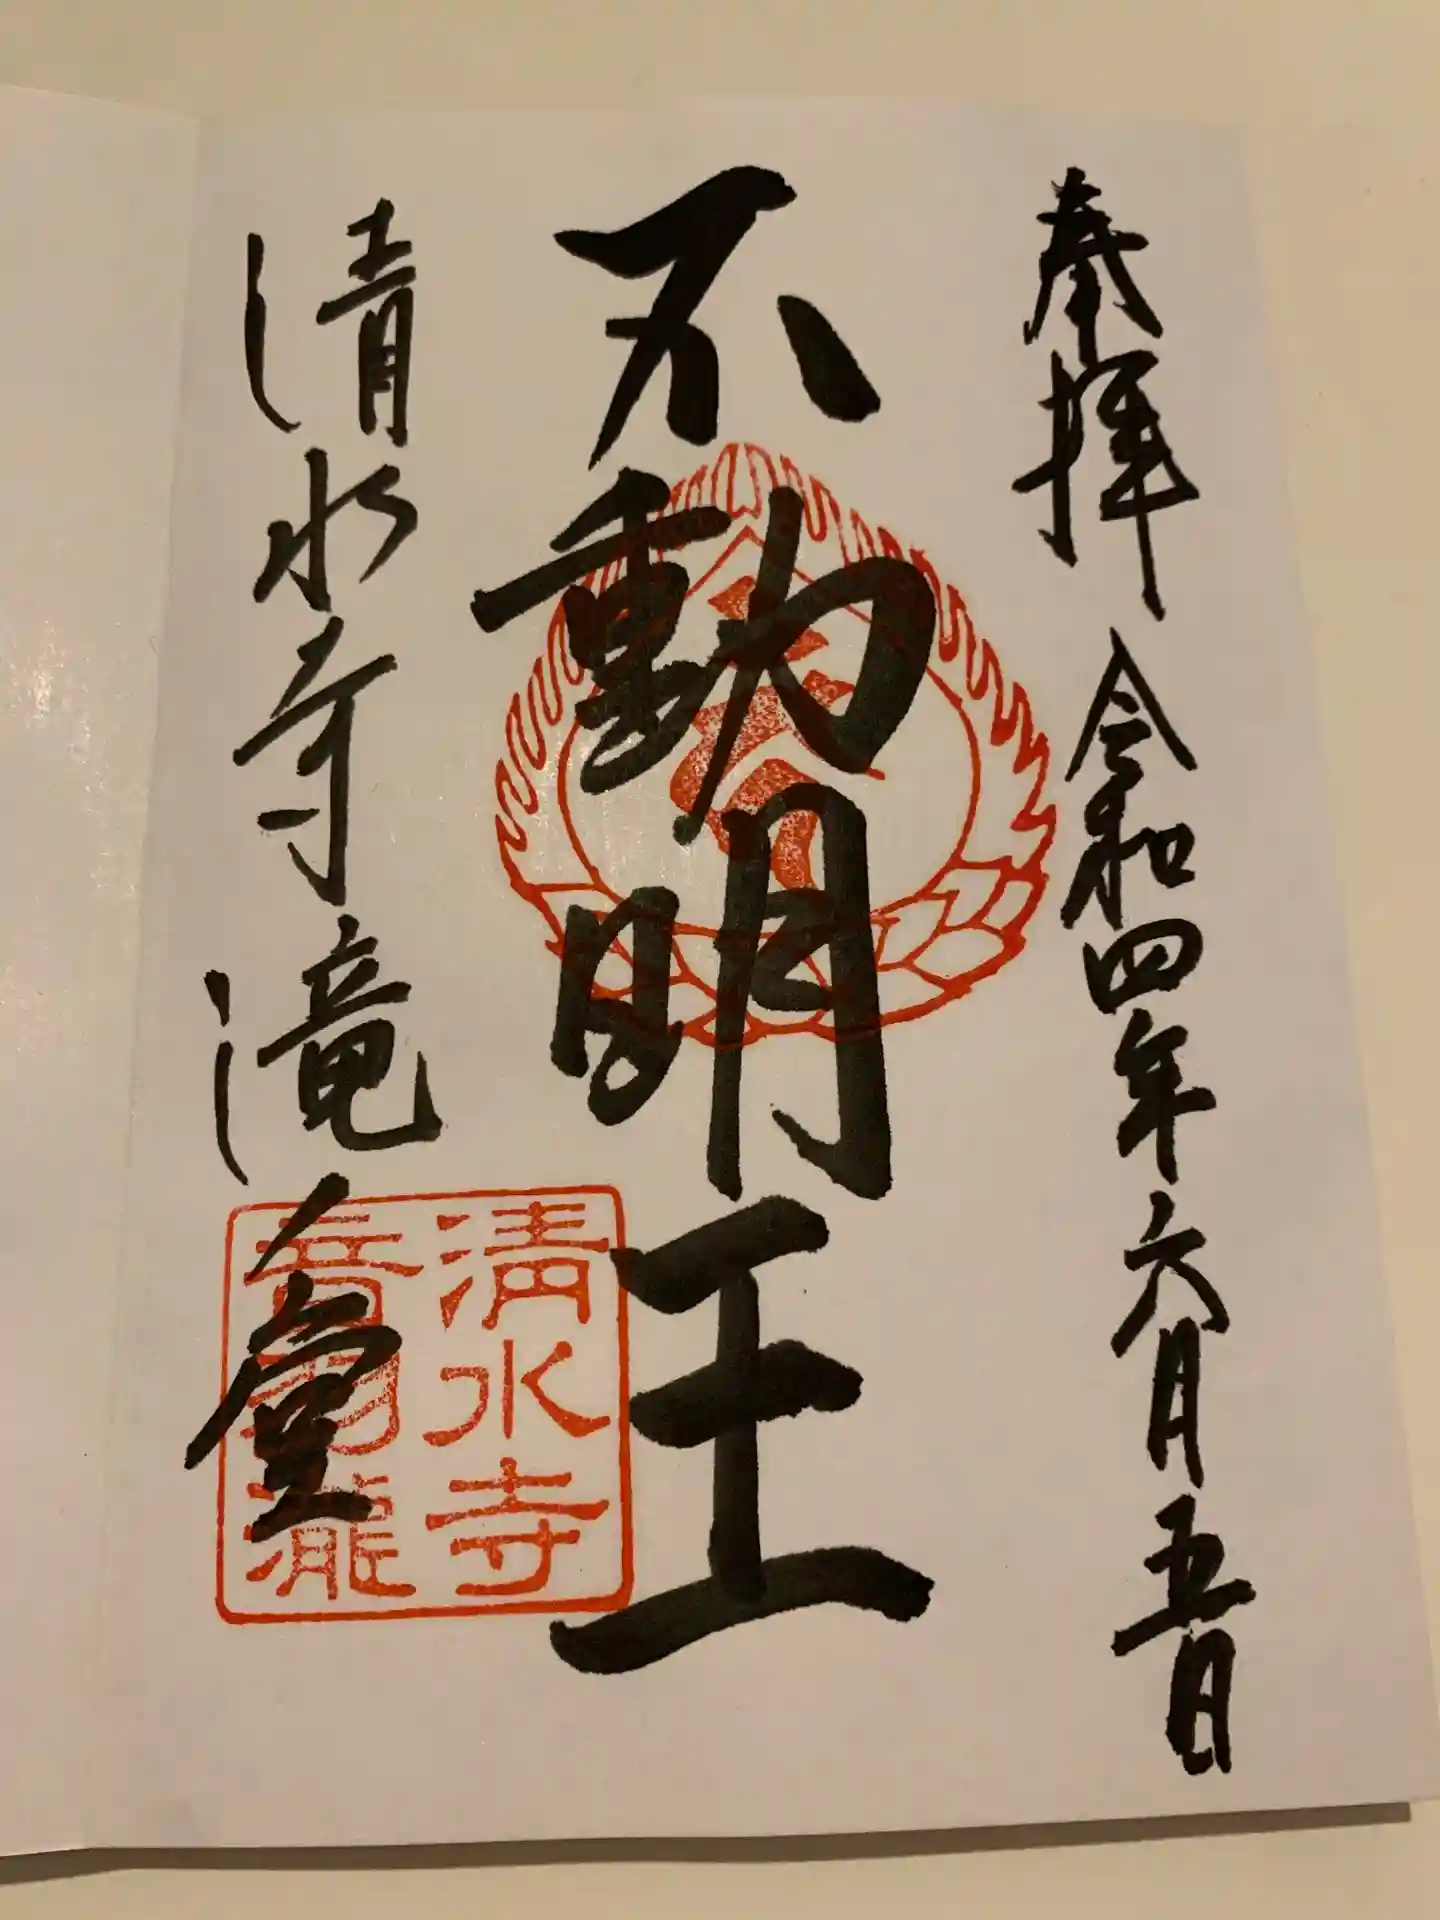 奉拝 令和四年六月五日
不動明王
清水寺滝堂
清水寺
音羽瀧